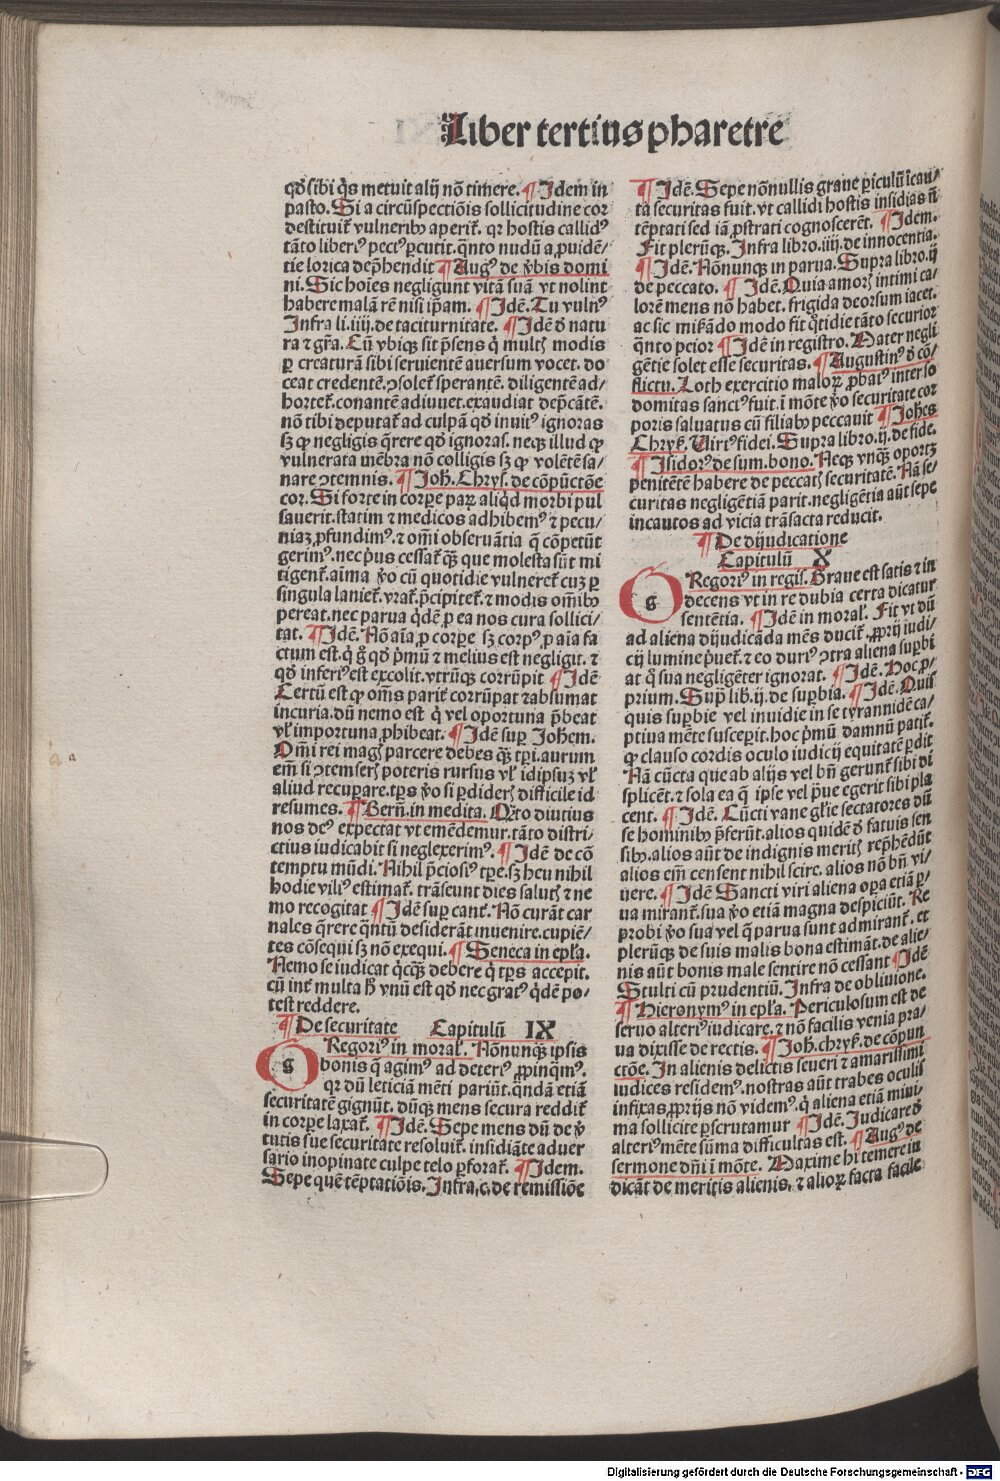 Liber tertius pharetre
qd̄ sibi q̇s metuit alij nō timere. ¶ Idem in
pasto. Si a circūspectiōis sollicitudine cor
destituit᷑ vulneribꝰ aperit᷑. qꝛ hostis callidꝰ
tāto liberiꝰ pectꝰ ꝑcutit. q̄nto nudū a ꝓuidē⸗
tie lorica dep̄hendit ¶ Augꝰ de v̄bis domi
ni. Sic hoīes negligunt vitā suā vt nolint
habere malā rē nisi ip̄am. ¶ Idē. Tu vulnꝰ
Infra li. iiij. de taciturnitate. ¶ Idē d̄ natu
ra ⁊ gr̄a. Cū vbiqꝫ sit p̄sens q̇ multꝭ modis
ꝑ creaturā sibi seruientē auersum vocet. do
ceat credentē. ꝯsolet᷑ sperantē. diligentē ad⸗
hortet᷑. conantē adiuuet. exaudiat dep̄cātē.
nō tibi deputat᷑ ad culpā qd̄ inuitꝰ ignoras
sꝫ ꝙ negligis q̄rere qd̄ ignoras. neqꝫ illud ꝙ
vulnerata mēbra nō colligis sꝫ ꝙ volētē sa⸗
nare ꝯtemnis. ¶ Joh̄. Chrys. de cōpūctōe
cor. Si forte in corꝑe paꝝ aliq̇d morbi pul
sauerit. statim ⁊ medicos adhibemꝰ ⁊ pecu⸗
niaꝫ ꝓfundimꝰ. ⁊ om̄i obseruātia q̄ cōpetūt
gerimꝰ. nec pꝰus cessat᷑ qꝫ que molesta sūt mi
tigent᷑. aīma v̄o cū quotidie vulneret᷑ cuꝫ ꝑ
singula laniet᷑. vrat᷑. p̄cipitet᷑. ⁊ modis om̄ibꝰ
pereat. nec parua q̇dē ꝑ ea nos cura sollici⸗
tat. ¶ Idē. Nō aīa ꝓ corꝑe sꝫ corpꝰ ꝓ aīa fa
ctum est. q̇ g̊ qd̄ ṗmū ⁊ melius est negligit. ⁊
qd̄ inferiꝰ est excolit. vtrūqꝫ corrūpit ¶ Idē
Certū est ꝙ om̄is parit᷑ corrūpat ⁊ absumat
incuria. dū nemo est q̇ vel oportuna p̄beat
vl̓ importuna ꝓhibeat. ¶ Idē suꝑ Johem.
Om̄i rei magꝭ parcere debes qꝫ tꝑi. aurum
em̄ si ꝯtemserꝭ poteris rursus vl̓ idipsuꝫ vl̓
aliud recuꝑare. tꝑs v̄o si ꝑdiderꝭ difficile id
resumes. ¶ Bern̄. in medita. Qn̄to diutius
nos deꝰ expectat vt emēdemur. tāto distri⸗
ctius iudicabit si neglexerimꝰ. ¶ Idē de cō
temptu mūdi. Nihil p̄ciosiꝰ tꝑe. sꝫ heu nihil
hodie viliꝰ estimat᷑. trāseunt dies salutꝭ ⁊ ne
mo recogitat ¶ Idē suꝑ cant᷑. Nō curāt car
nales q̄rere q̄ntū desiderāt inuenire. cupiē⸗
tes cōsequi sꝫ nō exequi. ¶ Seneca in ep̄la.
Nemo se iudicat q̇cqꝫ debere q̇ tꝑs accepit.
cū int᷑ multa h̄ vnū est qd̄ nec gratꝰ q̇dē po⸗
test reddere.
¶ De securitate Capitulū IX
Gg Regoriꝰ in moral̓. Nōnunqꝫ ipsis
bonis q̄ agimꝰ ad deteriꝰ ꝓpinq̇mꝰ.
qꝛ dū leticiā mēti pariūt. q̄ndā etiā
securitatē gignūt. dūqꝫ mens secura reddit᷑
in corꝑe laxat᷑. ¶ Idē. Sepe mens dū de v̇
tutis sue securitate resoluit᷑. insidiāte aduer
sario inopinate culpe telo ꝑforat᷑. ¶ Idem.
Sepe quē tēptatiōis. Infra. c. de remissiōe
¶ Idē. Sepe nōnullis graue ꝑiculū īcau⸗
ta securitas fuit. vt callidi hostis insidias n̄
tēptati sed iā ꝓstrati cognoscerēt. ¶ Idem.
Fit plerūqꝫ. Infra libro. iiij. de innocentia.
¶ Idē. Nōnunqꝫ in parua. Supra libro. ij
de peccato. ¶ Idē. Quia amorꝭ intimi ca⸗
lorē mens nō habet. frigida deorsum iacet.
ac sic mirādo modo fit q̇tidie tāto securior
q̄nto peior ¶ Idē in registro. Mater negli
gētie solet esse securitas. ¶ Augustinꝰ d̄ cō⸗
flictu. Loth exercitio maloꝝ ꝓbatꝰ inter so
domitas sanctꝰ fuit. ī mōte v̄o securitate cor
poris saluatus cū filiabꝰ peccauit ¶ Joh̄es
Chryẜ. Virtꝰ fidei. Supra libro. ij. de fide.
¶ Isidorꝰ de sum. bono. Neqꝫ vnqꝫ oportꝫ
penitētē habere de peccatꝭ securitatē. Nā se⸗
curitas negligētiā parit. negligētia aūt sepe
incautos ad vicia trāsacta reducit.
¶ De dijudicatione
Capitulū X
Gg Regoriꝰ in regis̓. Graue est satis ⁊ in
decens vt in re dubia certa dicatur
sententia. ¶ Idē in moral̓. Fit vt dū
ad aliena dijudicāda mēs ducit᷑. ꝓprij iudi⸗
cij lumine ṗuet᷑. ⁊ eo duriꝰ ꝯtra aliena suꝑbi
at q̇ sua negligēter ignorat. ¶ Idē. Hoc ꝓ⸗
prium. Sup̄ lib̓. ij. de suꝑbia. ¶ Idē. Quis
quis suꝑbie vel inuidie in se tyrannidē ca⸗
ptiua mēte susceperit. hoc ṗmū damnū patit᷑.
ꝙ clauso cordis oculo iudicij equitatē ꝑdit
Nā cūcta que ab alijs vel bn̄ gerunt᷑ sibi di
splicēt. ⁊ sola ea q̄ ipse vel p̄ue egerit sibi pla
cent. ¶ Idē. Cūcti vane gl̓ie sectatores dū
se hominibꝰ p̄ferūt. alios quidē d̄ fatuis sen
sibꝰ. alios aūt de indignis meritꝭ rep̄hēdūt
alios em̄ censent nihil scire. alios nō bn̄ vi⸗
uere. ¶ Idē Sancti viri aliena oꝑa etiā ꝑ⸗
ua mirant᷑. sua v̄o etiā magna despiciūt. Re
probi v̄o sua vel q̄ parua sunt admirant᷑. et
plerūqꝫ de suis malis bona estimāt. de alie⸗
nis aūt bonis male sentire nō cessant ¶ Idē
Stulti cū prudentiū. Infra de obliuione.
¶ Hieronymꝰ in ep̄la. Periculosum est de
seruo alteriꝰ iudicare. ⁊ nō facilis venia pra⸗
ua dixisse de rectis. ¶ Joh̄. chryẜ. de cōpun
ctōe. In alienis delictis seueri ⁊ amarissimi
iudices residemꝰ. nostras aūt trabes oculis
infixas ꝓprijs nō videmꝰ. q̇ aliena etiā mini⸗
ma sollicite perscrutamur ¶ Idē. Iudicare d̄
alteriꝰ mēte sūma difficultas est. ¶ Augꝰ de
sermone dn̄i ī mōte. Maxime hi temere in
dicāt de meritis alienis. ⁊ alioꝝ facta facile
Digitalisierung gefördert durch die Deutsche Forschungsgemeinschaft - DFG